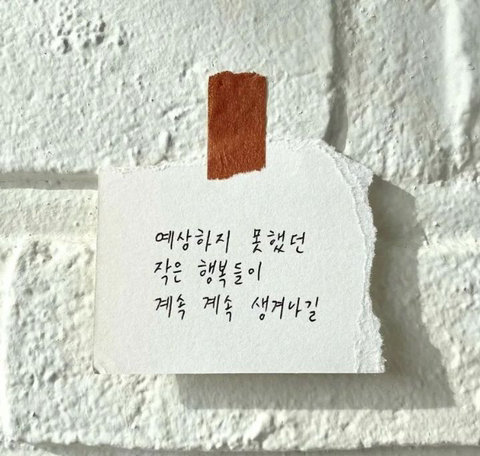 예상하지 못했던
작은 행복들이
계속 계속 생겨나길